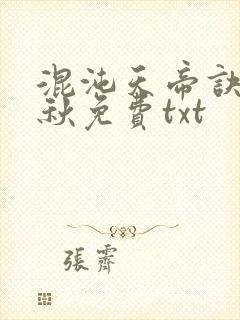 混沌天帝訣
秋免費txt
張齋